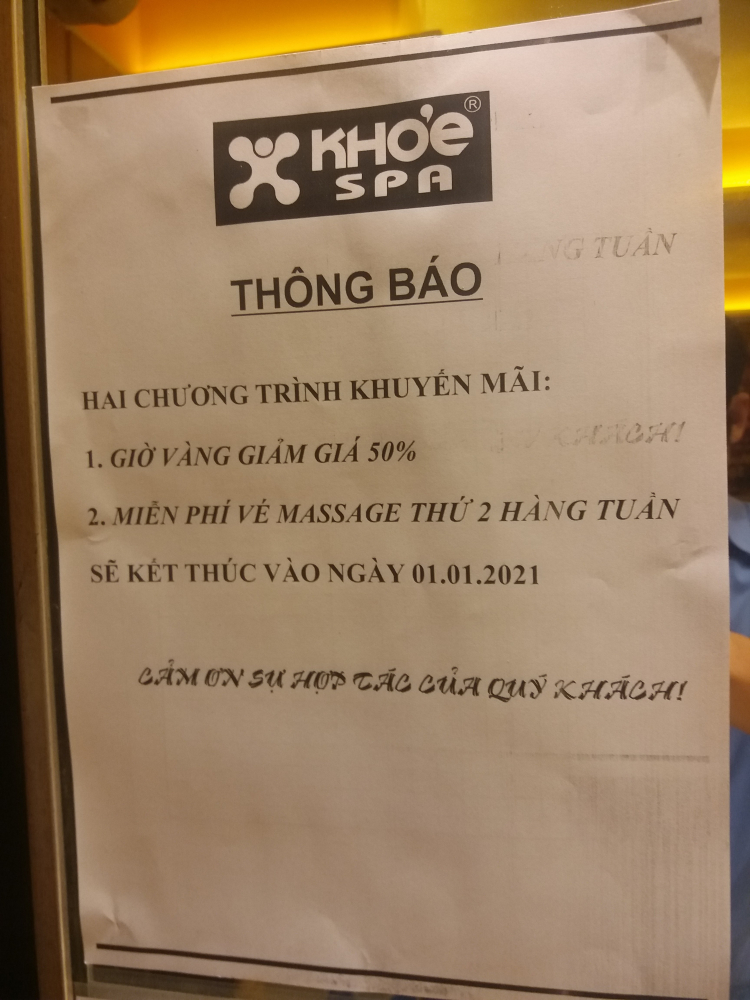 KHỎE ®
SPA
THÔNG BÁO
HAI CHƯƠNG TRÌNH KHUYẾN MÃI:
1. GIỜ VÀNG GIẢM GIÁ 50%
2. MIỄN PHÍ VÉ MASSAGE THỨ 2 HÀNG TUẦN
SẼ KẾT THÚC VÀO NGÀY 01.01.2021
CẢM ƠN SỰ HỢP TÁC CỦA QUÝ KHÁCH!